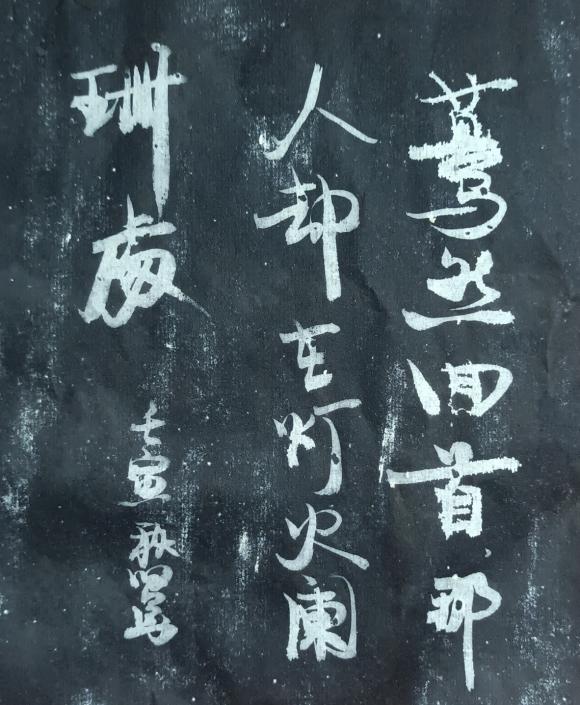 蓦然回首那
人却在灯火阑
珊處
壬寅秋